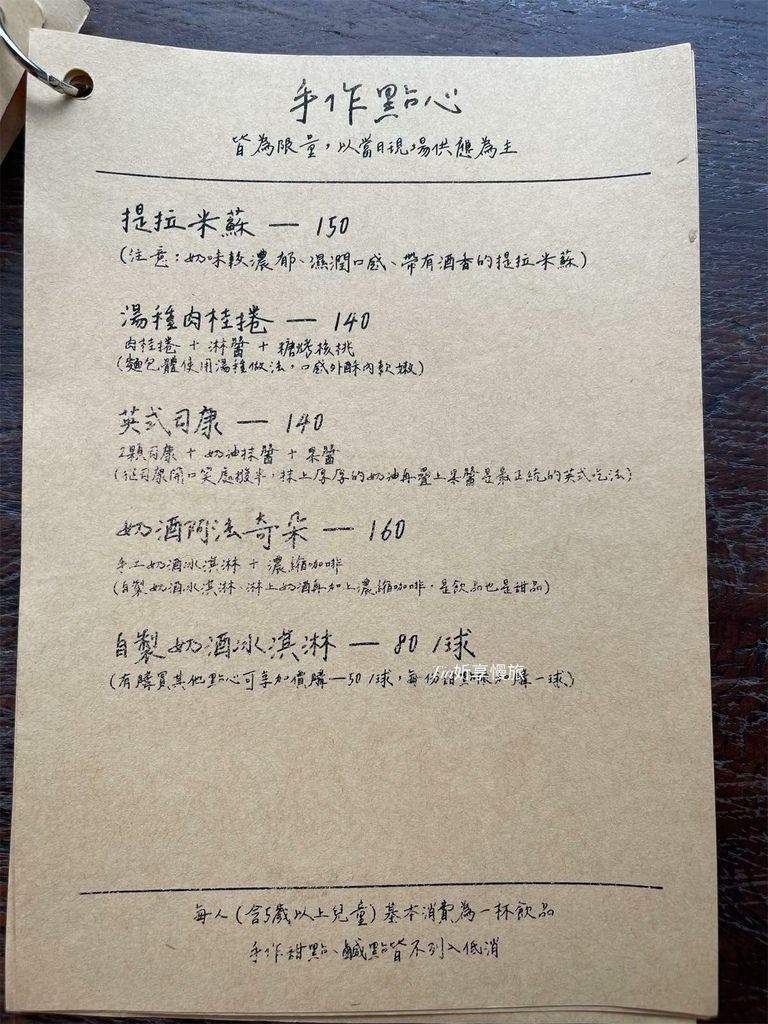 手作點心
皆為限量,以當日現場供應為主
提拉米蘇 — 150
(注意:奶味較濃郁、濕潤口感、帶有酒香的提拉米蘇)
湯種肉桂捲 — 140
肉桂捲 + 淋醬 + 糖烤核桃
(麵包體使用湯種做法,口感外酥內軟嫩)
英式司康 — 140
2顆司康 + 奶油抹醬 + 果醬
(從司康開口笑處撥半,抹上厚厚的奶油再疊上果醬是最正統的英式吃法)
奶酒阿法奇朵 — 160
手工奶酒冰淇淋 + 濃縮咖啡
(自製奶酒冰淇淋 淋上奶酒再加上濃縮咖啡,是飲品也是甜品)
自製奶酒冰淇淋 — 80 /球
Vivi妡享慢旅
(有購買其他點心可享加價購—50 /球,每份甜點限加購一球)
每人(含5歲以上兒童)基本消費為一杯飲品
手作甜點、鹹點皆不列入低消